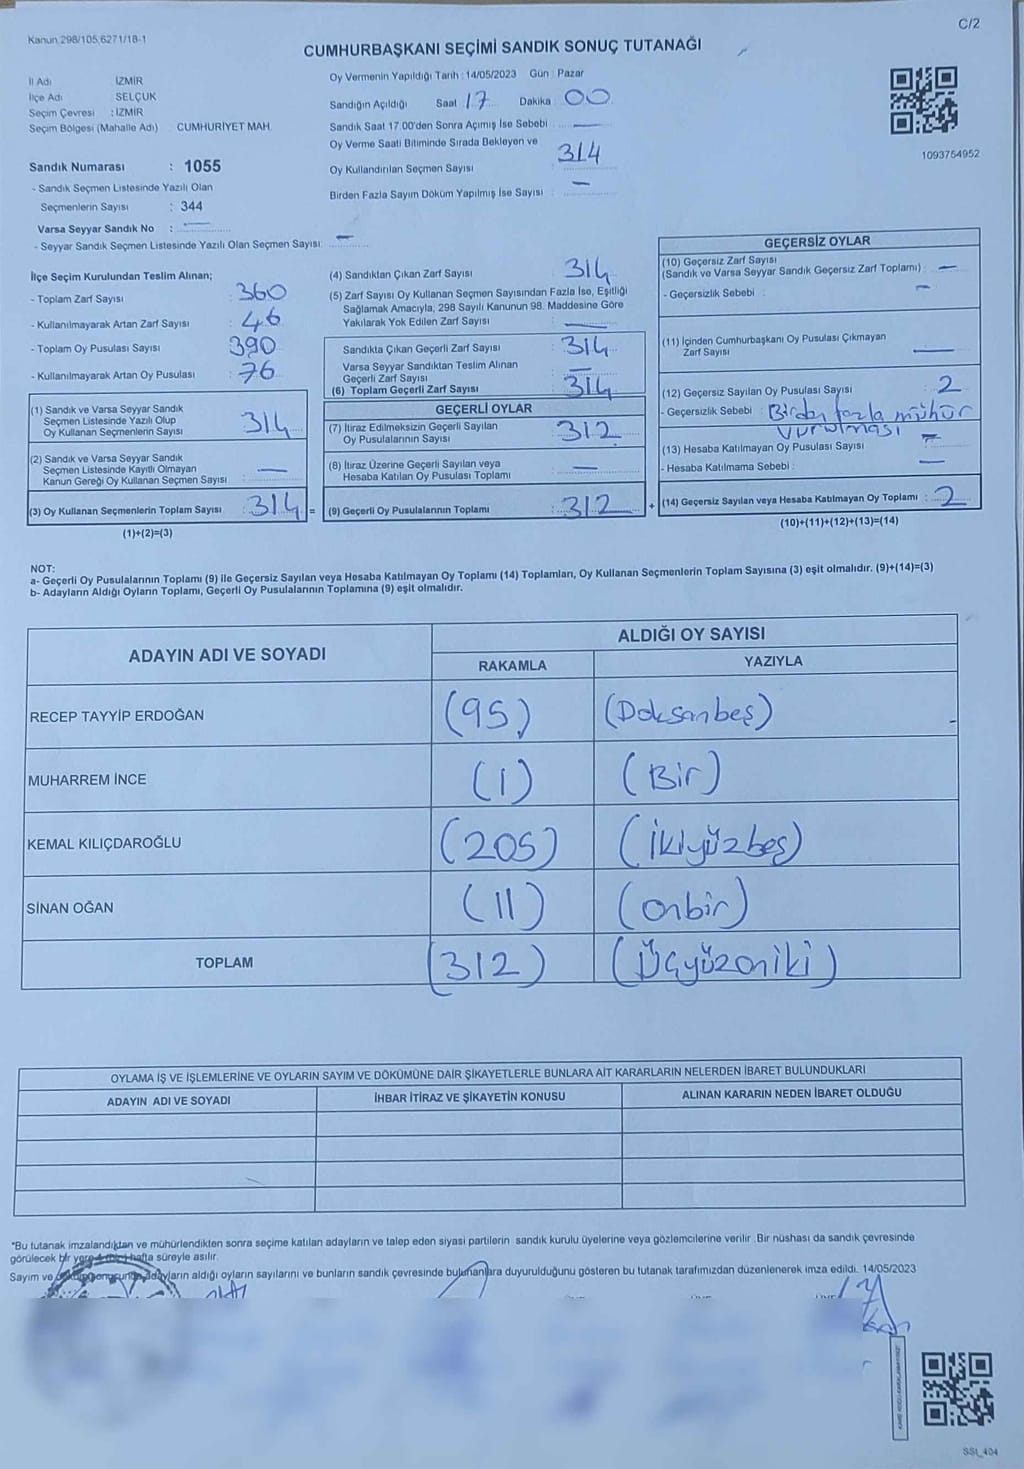 C/2
Kanun 298/105,6271/18-1
CUMHURBAŞKANI SEÇİMİ SANDIK SONUÇ TUTANAĞI
İl Adı : İZMİR
İlçe Adı : SELÇUK
Seçim Çevresi : İZMİR
Seçim Bölgesi (Mahalle Adı) CUMHURİYET MAH.
Sandık Numarası : 1055
- Sandık Seçmen Listesinde Yazılı Olan
Seçmenlerin Sayısı : 344
Varsa Seyyar Sandık No : —
- Seyyar Sandık Seçmen Listesinde Yazılı Olan Seçmen Sayısı: —
Oy Vermenin Yapıldığı Tarih : 14/05/2023 Gün : Pazar
Sandığın Açıldığı Saat 17 Dakika : 00
Sandık Saat 17.00'den Sonra Açımış İse Sebebi : —
Oy Verme Saati Bitiminde Sırada Bekleyen ve
Oy Kullandırılan Seçmen Sayısı : 314
Birden Fazla Sayım Döküm Yapılmış İse Sayısı : —
1093754952
İlçe Seçim Kurulundan Teslim Alınan;
- Toplam Zarf Sayısı : 360
- Kullanılmayarak Artan Zarf Sayısı : 46
- Toplam Oy Pusulası Sayısı : 390
- Kullanılmayarak Artan Oy Pusulası : 76
(1) Sandık ve Varsa Seyyar Sandık
Seçmen Listesinde Yazılı Olup
Oy Kullanan Seçmenlerin Sayısı : 314
(2) Sandık ve Varsa Seyyar Sandık
Seçmen Listesinde Kayıtlı Olmayan
Kanun Gereği Oy Kullanan Seçmen Sayısı : —
(3) Oy Kullanan Seçmenlerin Toplam Sayısı : 314 =
(1)+(2)=(3)
(4) Sandıktan Çıkan Zarf Sayısı : 314
(5) Zarf Sayısı Oy Kullanan Seçmen Sayısından Fazla İse, Eşitliği
Sağlamak Amacıyla, 298 Sayılı Kanunun 98. Maddesine Göre
Yakılarak Yok Edilen Zarf Sayısı : —
Sandıkta Çıkan Geçerli Zarf Sayısı : 314
Varsa Seyyar Sandıktan Teslim Alınan
Geçerli Zarf Sayısı : —
(6) Toplam Geçerli Zarf Sayısı : 314
GEÇERLİ OYLAR
(7) İtiraz Edilmeksizin Geçerli Sayılan
Oy Pusulalarının Sayısı : 312
(8) İtiraz Üzerine Geçerli Sayılan veya
Hesaba Katılan Oy Pusulası Toplamı : —
(9) Geçerli Oy Pusulalarının Toplamı : 312 +
GEÇERSİZ OYLAR
(10) Geçersiz Zarf Sayısı
(Sandık ve Varsa Seyyar Sandık Geçersiz Zarf Toplamı) : —
- Geçersizlik Sebebi : —
(11) İçinden Cumhurbaşkanı Oy Pusulası Çıkmayan
Zarf Sayısı : —
(12) Geçersiz Sayılan Oy Pusulası Sayısı : 2
- Geçersizlik Sebebi : Birden fazla mühür
vurulması
(13) Hesaba Katılmayan Oy Pusulası Sayısı : —
- Hesaba Katılmama Sebebi : —
(14) Geçersiz Sayılan veya Hesaba Katılmayan Oy Toplamı : 2
(10)+(11)+(12)+(13)=(14)
NOT:
a- Geçerli Oy Pusulalarının Toplamı (9) ile Geçersiz Sayılan veya Hesaba Katılmayan Oy Toplamı (14) Toplamları, Oy Kullanan Seçmenlerin Toplam Sayısına (3) eşit olmalıdır. (9)+(14)=(3)
b- Adayların Aldığı Oyların Toplamı, Geçerli Oy Pusulalarının Toplamına (9) eşit olmalıdır.
ADAYIN ADI VE SOYADI
ALDIĞI OY SAYISI
RAKAMLA YAZIYLA
RECEP TAYYİP ERDOĞAN (95) (Doksanbeş)
MUHARREM İNCE (1) (Bir)
KEMAL KILIÇDAROĞLU (205) (İkiyüzbeş)
SİNAN OĞAN (11) (onbir)
TOPLAM (312) (Üçyüzoniki)
OYLAMA İŞ VE İŞLEMLERİNE VE OYLARIN SAYIM VE DÖKÜMÜNE DAİR ŞİKAYETLERLE BUNLARA AİT KARARLARIN NELERDEN İBARET BULUNDUKLARI
ADAYIN ADI VE SOYADI İHBAR İTİRAZ VE ŞİKAYETİN KONUSU ALINAN KARARIN NEDEN İBARET OLDUĞU
*Bu tutanak imzalandıktan ve mühürlendikten sonra seçime katılan adayların ve talep eden siyasi partilerin sandık kurulu üyelerine veya gözlemcilerine verilir. Bir nüshası da sandık çevresinde
görülecek bir yere hafta süreyle asılır.
Sayım ve adayların aldığı oyların sayılarını ve bunların sandık çevresinde bulunanlara duyurulduğunu gösteren bu tutanak tarafımızdan düzenlenerek imza edildi. 14/05/2023
SSI_404